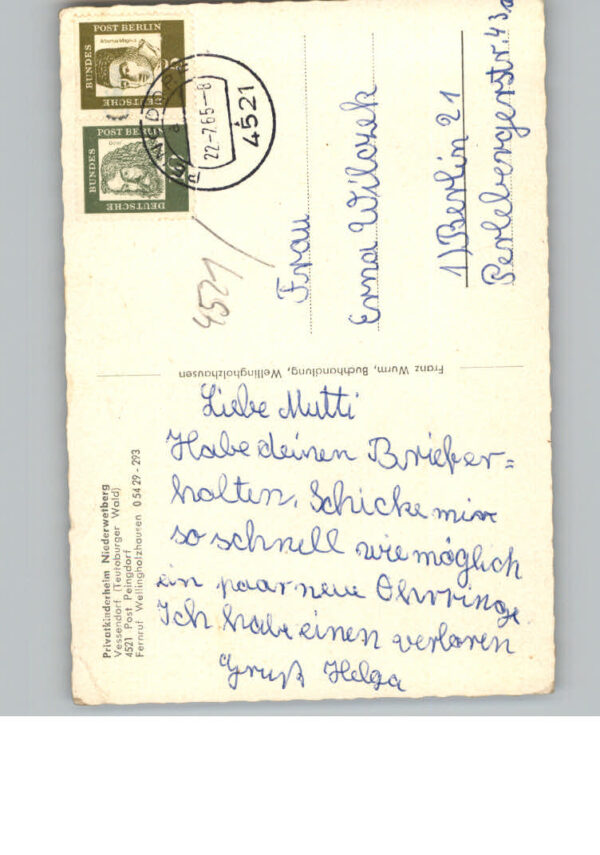 Liebe Mutti
Habe deinen Brief er=
halten. Schicke mir
so schnell wie möglich
ein paar neue Ohrringe
Ich habe einen verloren
Gruß Helga
Privatkinderheim Niederwetberg
Vessendorf (Teutoburger Wald)
4521 Post Peingdorf
Fernruf Wellingholzhausen 0 54 29 - 293
Franz Wurm, Buchhandlung, Wellingholzhausen
Frau
Erna Wilczek
1) Berlin 21
Perlebergerstr. 43a
4521
22-7.65-8
4521
DEUTSCHE
BUNDES
POST BERLIN
Albertus Magnus
DEUTSCHE
BUNDES
POST BERLIN